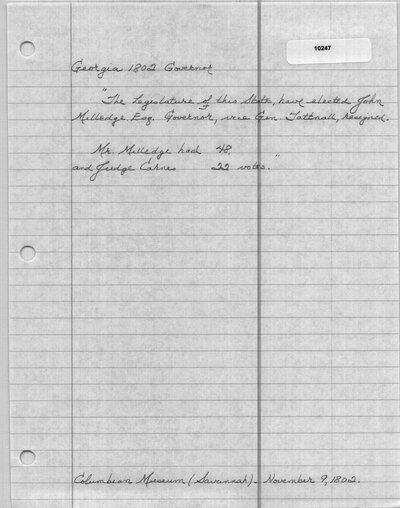 10247
Georgia 1802 Governor
"The Legislature of this State, have elected John
Milledge Esq. Governor, vice Gen. Tattnall, resigned.
Mr. Milledge had 48,
and Judge Carnes 22 votes."
Columbian Museum (Savannah). November 9, 1802.